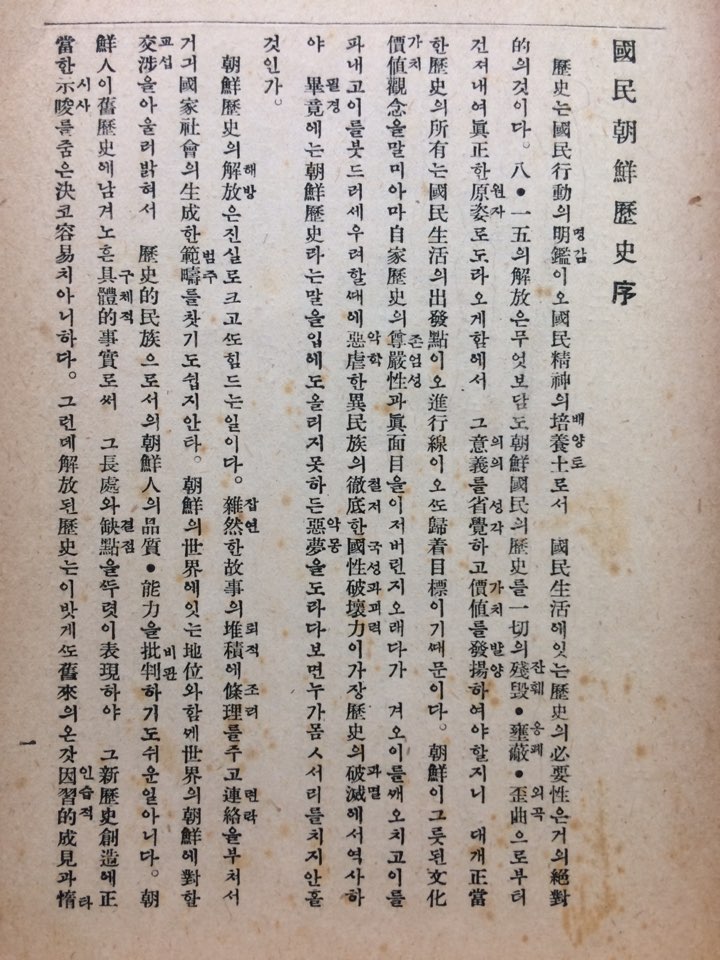 國民朝鮮歷史序
歷史는國民行動의明鑑이오國民精神의培養土로서 國民生活에잇는歷史의必要性은거의絕對
명감 배양토
的의것이다。八•一五의解放은무엇보담도朝鮮國民의歷史를一切의殘毁•壅蔽•歪曲으로부터
잔훼 옹폐 외곡
건져내여眞正한原委로도라오게함에서 그意義를省覺하고價値를發揚하여야할지니 대개正當
원자 의의 성각 가치 발양
한歷史의所有는國民生活의出發點이오進行線이오ᄯᅩ歸着目標이기ᄯᅢ문이다。朝鮮이그릇된文化
價値觀念을말미아마自家歷史의尊嚴性과眞面目을이저버린지오래다가 겨오이를ᄭᅢ오치고이를
가치 존엄성
파내고이를붓드러세우려할ᄯᅢ에惡虐한異民族의徹底한國性破壞力이가장歷史의破滅에서역사하
악학 철저 국성과괴력 파멸
야 畢竟에는朝鮮歷史라는말을입에도올리지못하든惡夢을도라다보면누가몸ㅅ서리를치지안흘
필경 악몽
것인가。
朝鮮歷史의解放은진실로크고ᄯᅩ힘드는일이다。雜然한故事의堆積에條理를주고連絡을부처서
해방 잡연 퇴적 조리 련락
거긔國家社會의生成한範疇를찻기도쉽지안타。朝鮮의世界에잇는地位와함ᄭᅦ世界의朝鮮에對한
범주
交涉을아울러밝혀서 歷史的民族으로서의朝鮮人의品質•能力을批判하기도쉬운일아니다。朝
교섭 비판
鮮人이舊歷史에남겨노흔具體的事實로써 그長處와缺點을ᄯᅮ렷이表現하야 그新歷史創造에正
구체적 결점
當한示唆를줌은決코容易치아니하다。그런데解放된歷史는이밧게ᄯᅩ舊來의온갓因習的成見과惰
시사 인습적 타
一